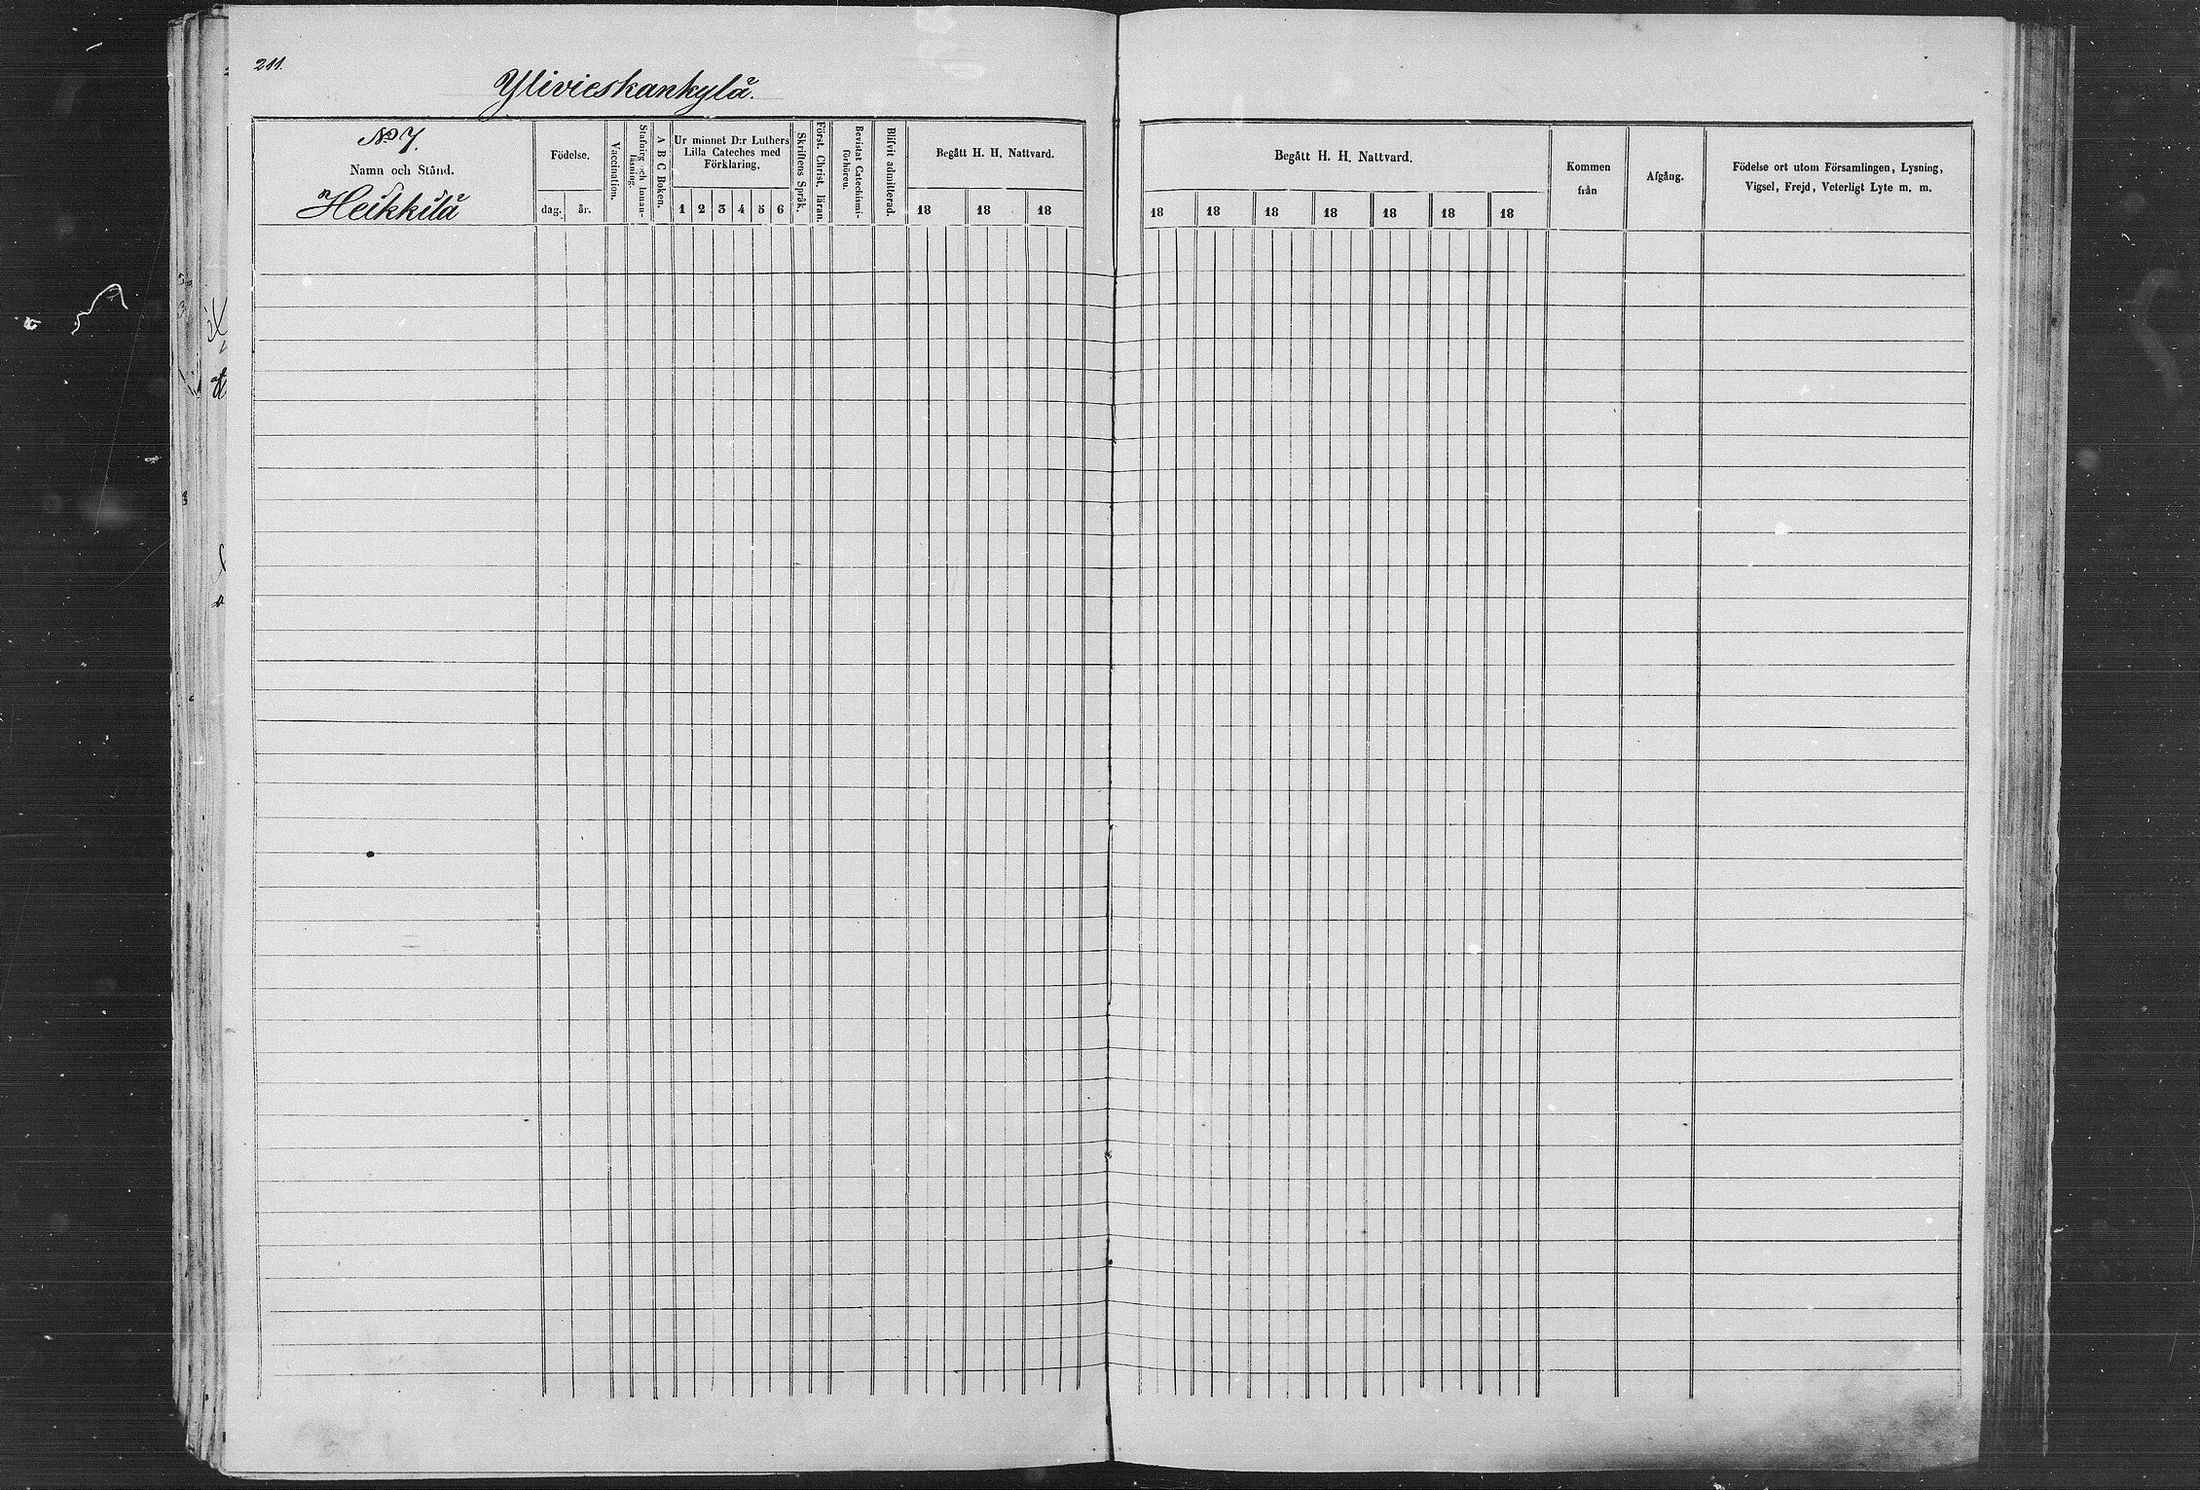 211.
Ylivieskankylä.
No 7.
Namn och Stånd.
Heikkilä
Födelse.
dag.
år.
Vaccination.
Stafning och Innan-
läsning.
A B C Boken.
Ur minnet D:r Luthers
Lilla Cateches med
Förklaring.
1 2 3 4 5 6
Skriftens Språk.
Först. Christ. läran.
Bevistat Catechismi-
förhören.
Blifvit admitterad.
Begått H. H. Nattvard.
18 18 18
Begått H. H. Nattvard.
18 18 18 18 18 18 18
Kommen
från
Afgång.
Födelse ort utom Församlingen, Lysning,
Vigsel, Frejd, Veterligt Lyte m. m.